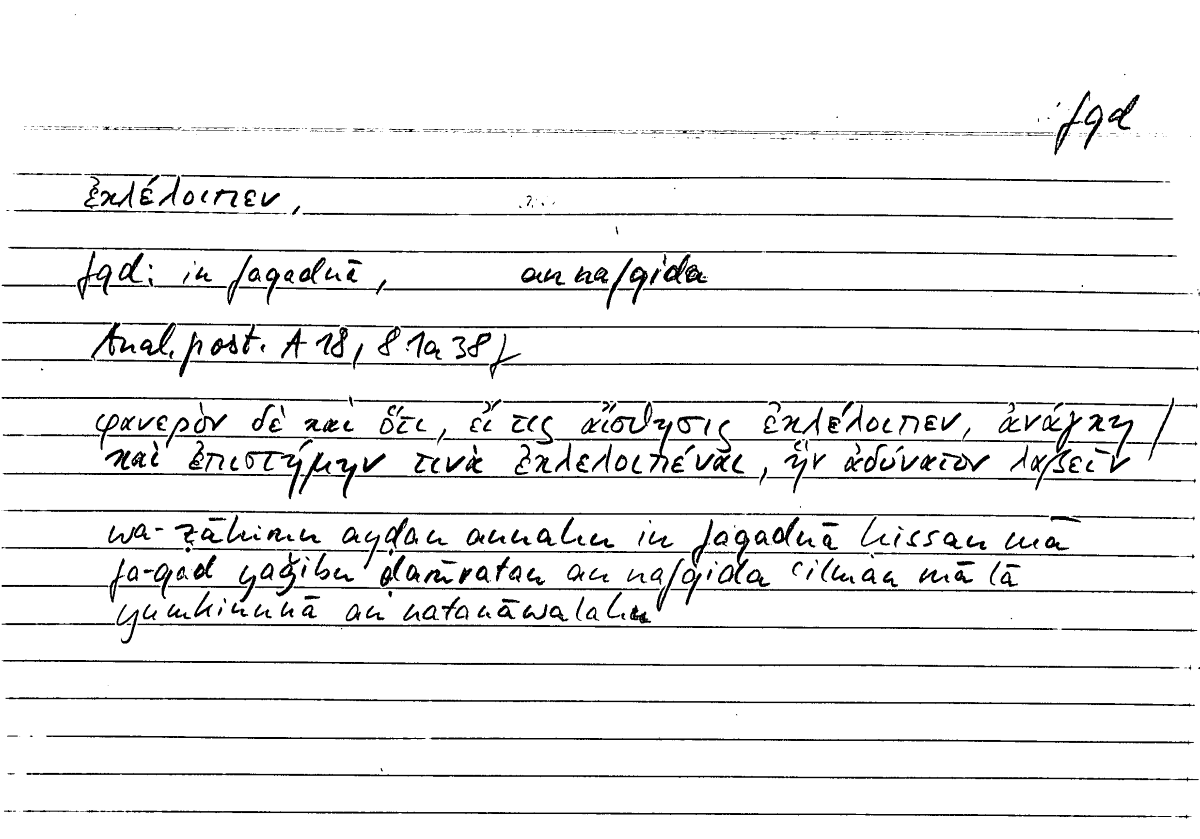 fqd
ἐκλέλοιπεν,
fqd: in faqadnā, an nafqida
Anal. post. A 18, 81a38f
φανερὸν δὲ καὶ ὅτι, εἴ τις αἴσθησις ἐκλέλοιπεν, ἀνάγκη /
καὶ ἐπιστήμην τινὰ ἐκλελοιπέναι, ἣν ἀδύνατον λαβεῖν
wa-ẓāhirun ayḍan annahu in faqadnā ḥissan mā
fa-qad yaǧibu ḍarūratan an nafqida ʿilman mā lā
yumkinunā an natanāwalahu